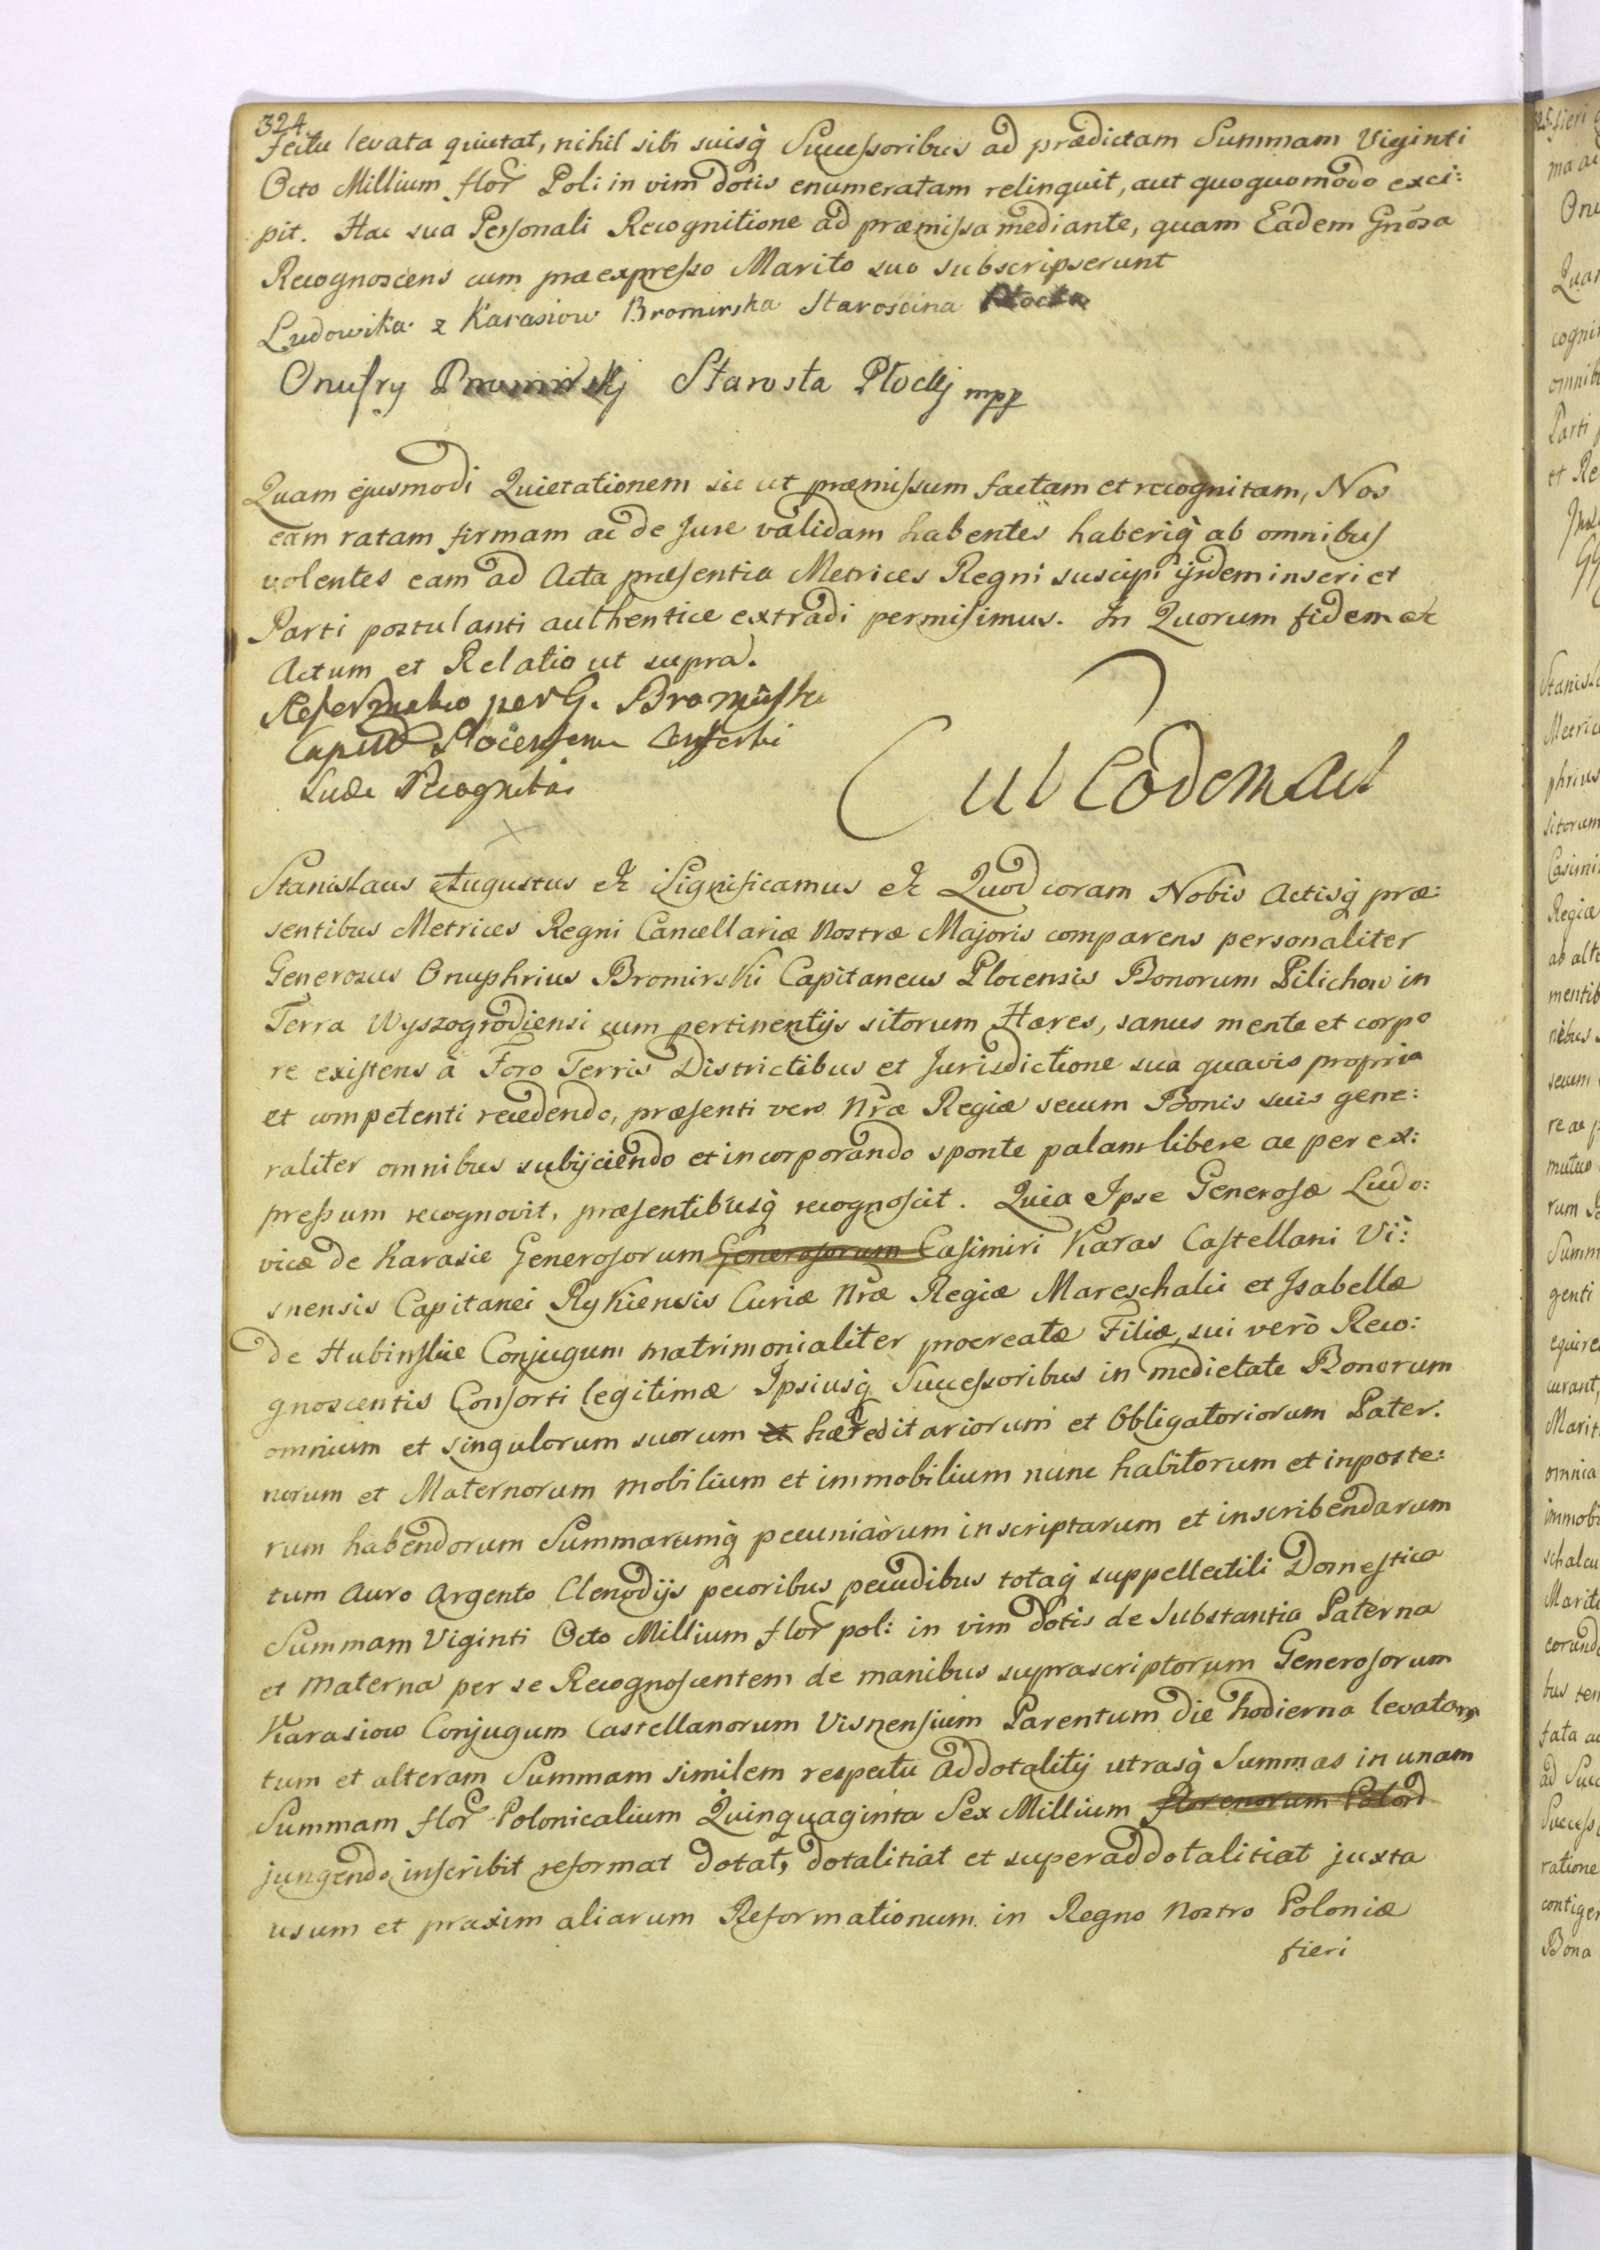 324.
fectu levata quietat, nihil sibi suisq̀ Successoribus ad prædictam Summam Viginti
Octo Millium flor Poli in vim dotis enumeratam relinquit, aut quoquomodo exci:
pit. Hac sua Personali Recognitione ad præmissa mediante, quam Eadem Gnosa
Recognoscens cum præexpresso Marito suo subscripserunt
Ludowika z Karasiow Bromirska Starościna Płocka
Onufry Bromirskj Starosta Płockj mpp
Quam ejusmodi Quietationem sic ut præmissum factam et recognitam, Nos
eam ratam firmam ac de Jure validam habentes haberiq̀ ab omnibus
volentes eam ad Acta præsentia Metrices Regni suscipi ijsdem inseri et
Parti postulanti authentice extradi permisimus. In Quorum fidem etc
Actum et Relatio ut supra.
Reformatio per G. Bromirski
Capit Plocensem Consorti
suæ Recognita
Sub Eodem Act
Stanislaus Augustus etc Significamus etc Quod coram Nobis Actisq̀ præ:
sentibus Metrices Regni Cancellariæ Nostræ Majoris comparens personaliter
Generosus Onuphrius Bromirski Capitaneus Plocensis Bonorum Pilichow in
Terra Wyszogrodiensi cum pertinentijs sitorum Hæres, sanus mente et corpo
re existens à Foro Terris Districtibus et Jurisdictione sua quavis propria
et competenti recedendo, præsenti vero Nræ Regiæ secum Bonis suis gene:
raliter omnibus subijciendo et incorporando sponte palam libere ac per ex:
pressum recognovit, præsentibusq̀ recognoscit. Quia Ipse Generosæ Ludo:
vicæ de Karasie Generosorum Generosorum Casimiri Karas Castellani Vi:
snensis Capitanei Rykiensis Curiæ Nræ Regiæ Mareschalci et Isabellæ
de Hubinskie Conjugum matrimonialiter procreatæ Filiæ, sui verò Reco:
gnoscentis Consorti legitimæ Ipsiusq̀ Successoribus in medietate Bonorum
omnium et singulorum suorum et hæreditariorum et Obligatoriorum Pater:
norum et Maternorum mobilium et immobilium nunc habitorum et inposte:
rum habendorum Summarumq̀ pecuniarum inscriptarum et inscribendarum
tum Auro Argento Clenodijs pecoribus pecudibus totaq̀ suppellectili Domestica
Summam Viginti Octo Millium flor pol: in vim dotis de Substantia Paterna
et Materna per se Recognoscentem de manibus suprascriptorum Generosorum
Karasiow Conjugum Castellanorum Visnensium Parentum die hodierna levatam
tum et alteram Summam similem respectu addotalitij utrasq̀ Summas in unam
Summam flor Polonicalium Quinquaginta Sex Millium florenorum Polord
jungendo inscribit reformat dotat, dotalitiat et superaddotalitiat juxta
usum et praxim aliarum Reformationum in Regno Nostro Poloniæ
fieri